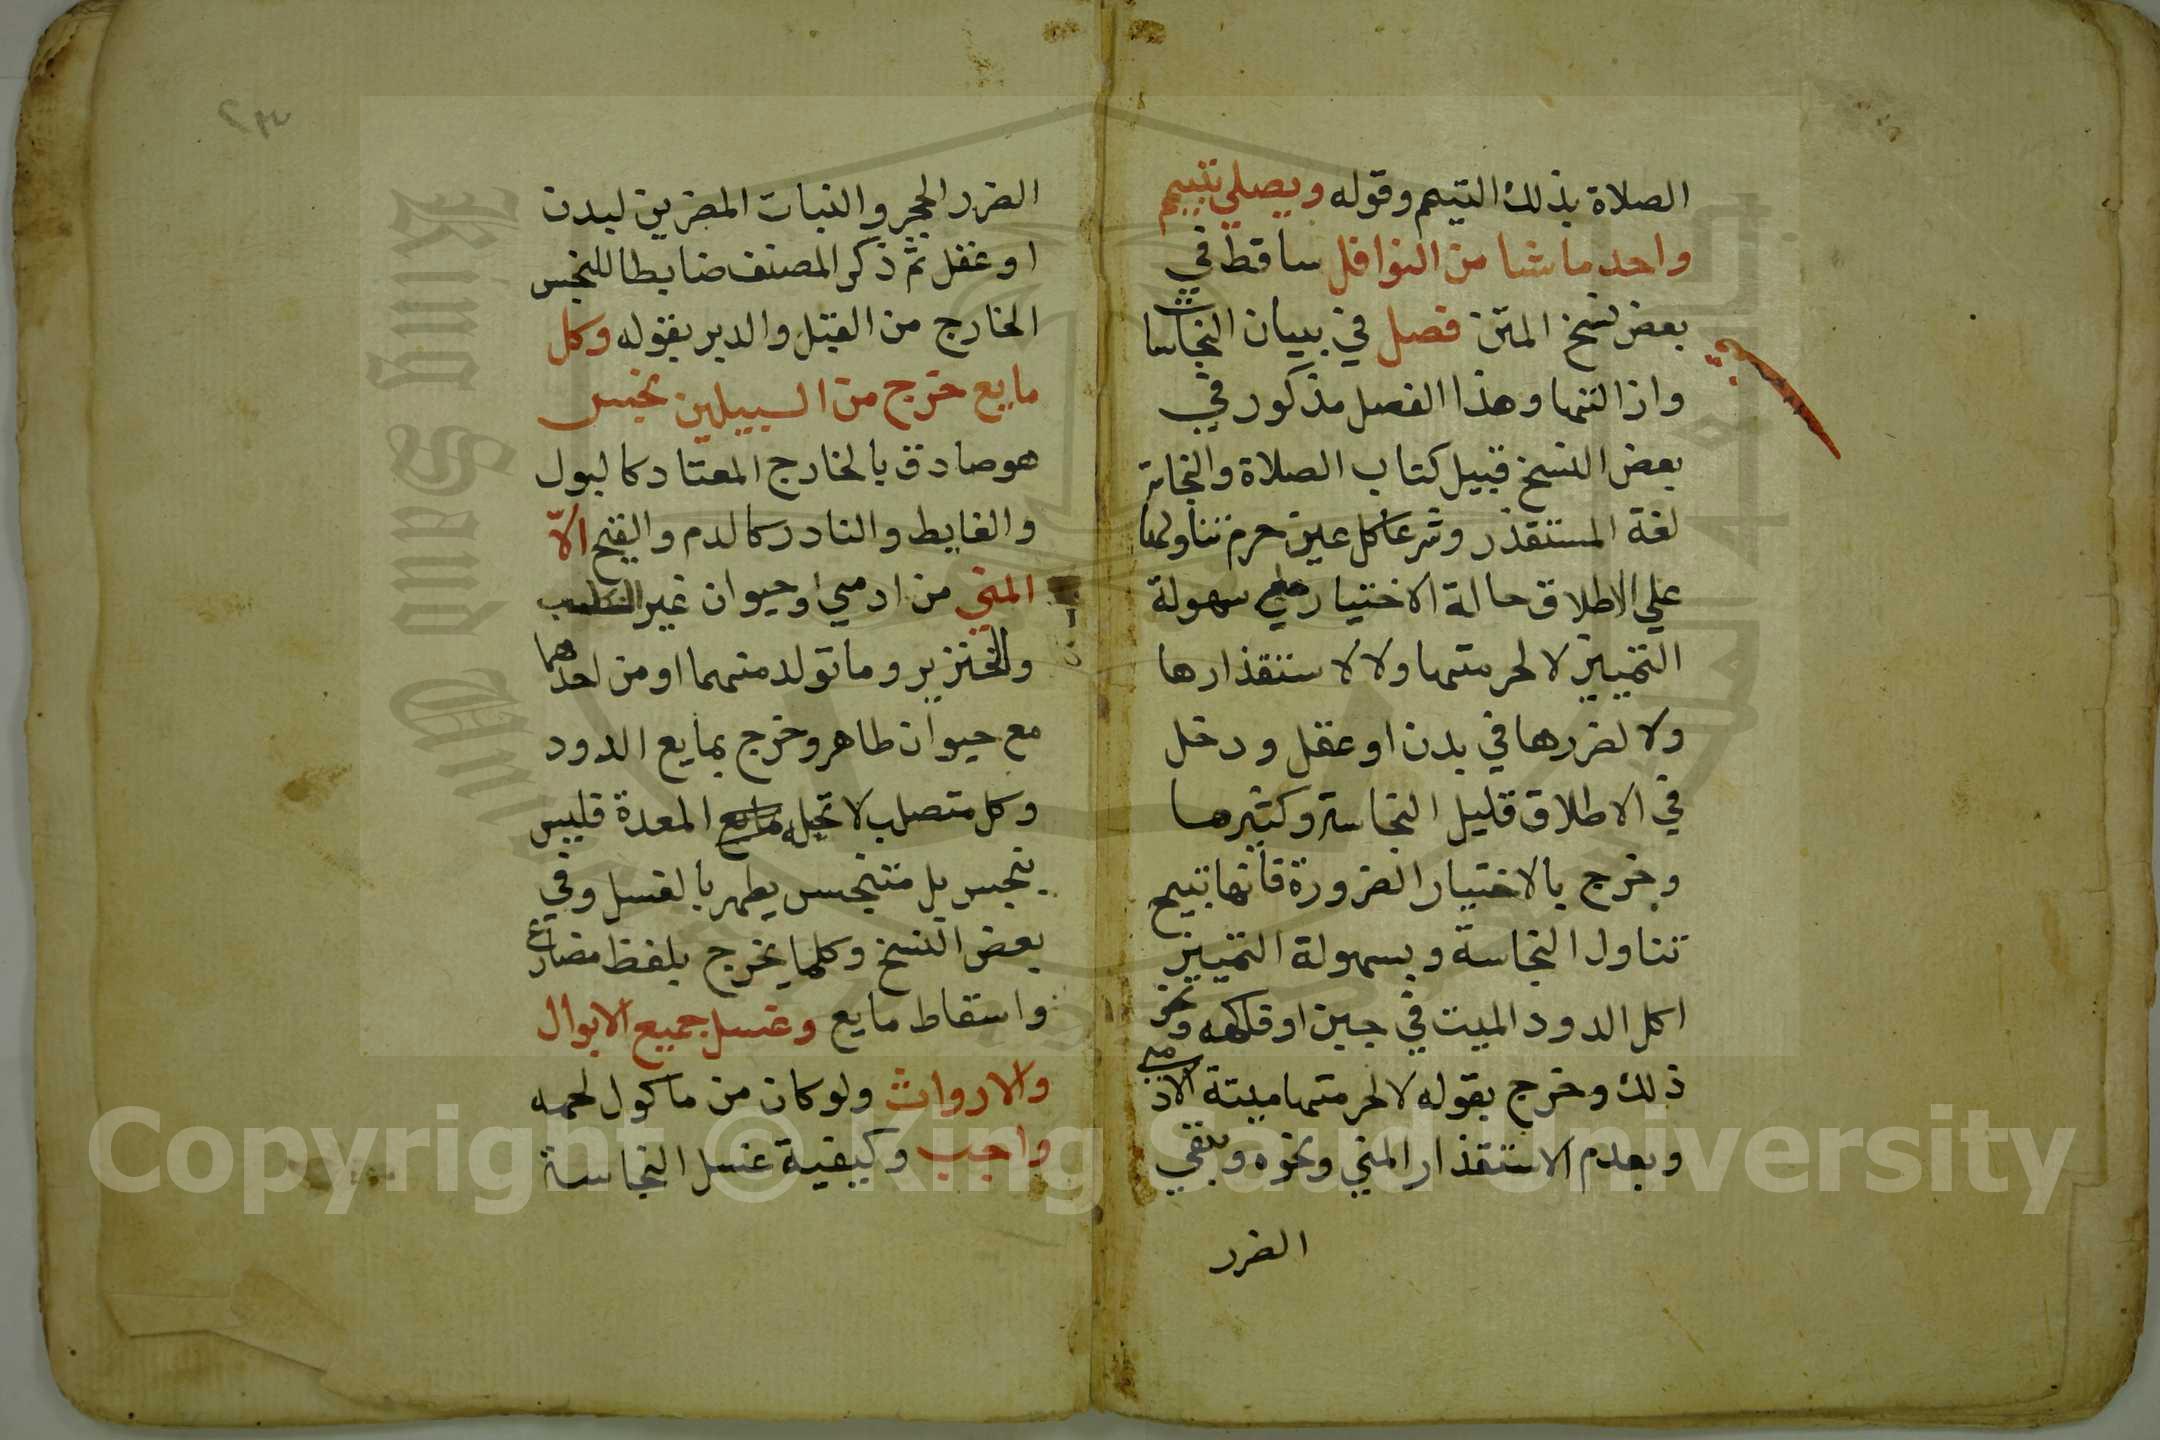 الصلاة بذلك التيمم وقوله ويصلي بتيمم
واحد ما شا من النوافل ساقط في
بعض نسخ المتن فصل في بيان النجاسات
وازالتها وهذا الفصل مذكور في
بعض النسخ قبيل كتاب الصلاة والنجاسة
لغة المستقذر وشرعا كل عين حرم تناولها
علي الاطلاق حالة الاختيار مع سهولة
التمييز لا لحرمتها ولا لاستقذارها
ولا لضررها في بدن او عقل ودخل
في الاطلاق قليل النجاسة وكثيرها
وخرج بالاختيار الضرورة فانها تبيح
تناول النجاسة وبسهولة التمييز
اكل الدود الميت في جبن او فاكهه ونحو
ذلك وخرج بقوله لا لحرمتها ميتة الادمي
وبعدم الاستقذار المني ونحوه وبنفي
الضرر
٢٣
الضرر الحجر والنبات المضرين لبدن
او عقل ثم ذكر المصنف ضابطا للنجس
الخارج من القبل والدبر بقوله وكل
مايع خرج من السبيلين نجس
هو صادق بالخارج المعتاد كالبول
والغايط والنادر كالدم والقيح الا
المني من ادمي او حيوان غير الكلب
والخنزير وما تولد منهما او من احدهما
مع حيوان طاهر وخرج بمايع الدود
وكل متصلب لا تحيله المعدة فليس
بنجس بل متنجس يطهر بالغسل وفي
بعض النسخ وكلما يخرج بلفظ مضارع
واسقاط مايع وغسل جميع الابوال
والارواث ولو كان من ماكول لحمه
واجب وكيفية غسل النجاسة
King Saud University
Copyright © King Saud University